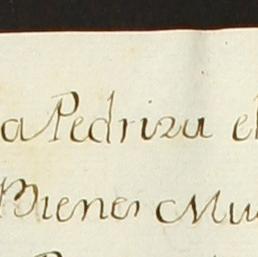 a Pedrizu el
Bienes Mu